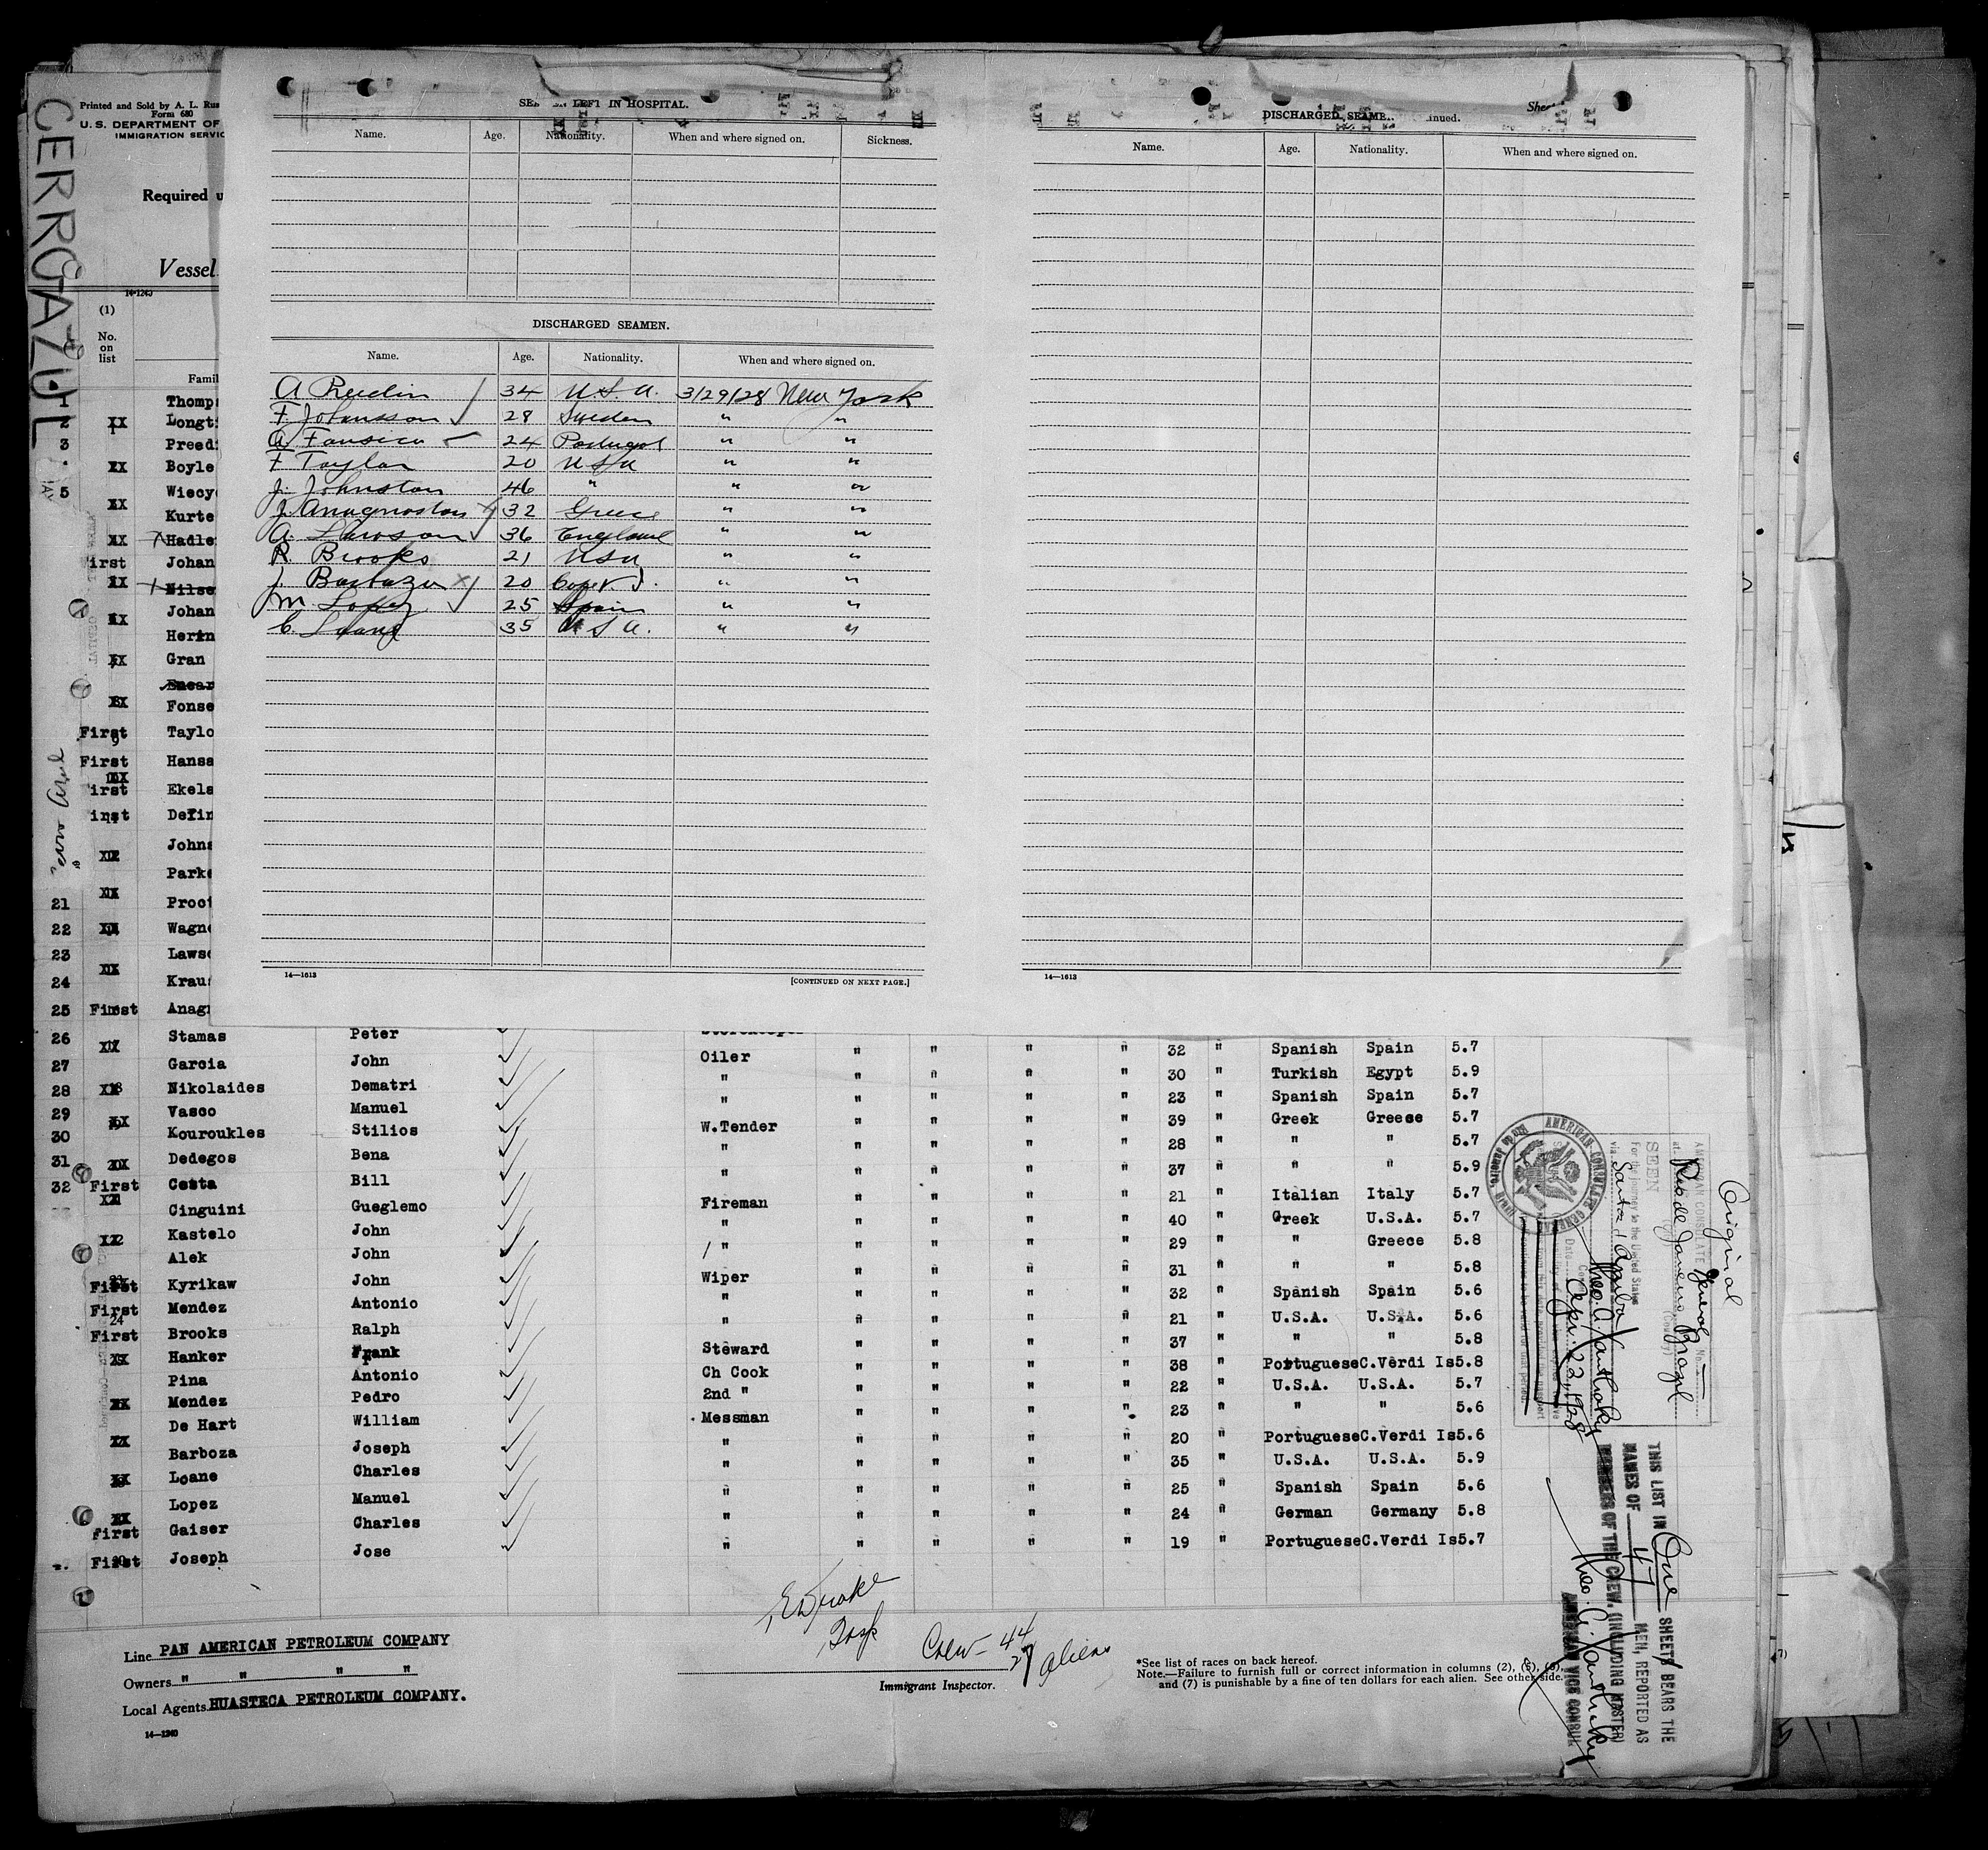 CERRO AZUL
Printed and Sold by A. L. Rus
Form 680
U. S. DEPARTMENT OF
IMMIGRATION SERVIC
Required u
Vessel
14-1240
(1)
No.
on
list
Famil
LEFT IN HOSPITAL.
Name. Age. Nationality. When and where signed on. Sickness.
DISCHARGED SEAMEN.
Name. Age. Nationality. When and where signed on.
A Reudin 34 U.S.A. 3/29/28 New York
F. Johansson 28 Sweden " "
A Fonseca 24 Portugal " "
F Taylor 20 USA " "
J. Johnston 46 " " "
J. Anagnostou 32 Greece " "
A. Lawson 36 England " "
R. Brooks 21 USA " "
J. Barboza 20 " "
M. Lopez 25 Spain " "
C. Loane 35 U S A. " "
14—1613 [CONTINUED ON NEXT PAGE.]
Sheet
DISCHARGED SEAME inued.
Name. Age. Nationality. When and where signed on.
14—1613
Thomps
2 Longti
3 Preedi
Boyle
5 Wiecy
Kurte
Hadle
First Johan
Nilse
Johan
Herin
Gran
Fonse
First Taylo
First Hanss
irst Ekels
Defin
Johns
Parke
21 Proct
22 Wagne
23 Lawso
24 Kraus
25 First Anagn
26 Stamas Peter
27 Garcia John Oiler " " " " 32 " Spanish Spain 5.7
28 Nikolaides Dematri " " " " " 30 " Turkish Egypt 5.9
29 Vasco Manuel " " " " " 23 " Spanish Spain 5.7
30 Kouroukles Stilios W.Tender " " " " 39 " Greek Greece 5.7
31 Dedegos Bena " " " " " 28 " " " 5.7
32 First Costa Bill " " " " " 37 " " " 5.9
Cinguini Gueglemo Fireman " " " " 21 " Italian Italy 5.7
Kastelo John " " " " " 40 " Greek U.S.A. 5.7
Alek John " " " " " 29 " " Greece 5.8
First Kyrikaw John Wiper " " " " 31 " " " 5.8
First Mendez Antonio " " " " " 32 " Spanish Spain 5.6
First Brooks Ralph " " " " " 21 " U.S.A. U.S.A. 5.6
Hanker Frank Steward " " " " 37 " " " 5.8
Pina Antonio Ch Cook " " " " 38 " Portuguese C.Verdi Is 5.8
Mendez Pedro 2nd " " " " " 22 " U.S.A. U.S.A. 5.7
De Hart William Messman " " " " 23 " " " 5.6
Barboza Joseph " " " " " 20 " Portuguese C.Verdi Is 5.6
Loane Charles " " " " " 35 " U.S.A. U.S.A. 5.9
Lopez Manuel " " " " " 25 " Spanish Spain 5.6
First Gaiser Charles " " " " " 24 " German Germany 5.8
First Joseph Jose " " " " " 19 " Portuguese C.Verdi Is 5.7
Line PAN AMERICAN PETROLEUM COMPANY
Owners " " " "
Local Agents HUASTECA PETROLEUM COMPANY.
14—1240
Crew - 44
27 aliens
Immigrant Inspector.
*See list of races on back hereof.
Note.—Failure to furnish full or correct information in columns (2), (5), (6),
and (7) is punishable by a fine of ten dollars for each alien. See other side.
Original
AMERICAN CONSULATE General
at Rio de Janeiro, Brazil
(Country)
SEEN
For the journey to the United States
via Santos
Date Apr. 23, 1928
AMERICAN CONSULATE GENERAL
Rio de Janeiro, Brazil
THIS LIST IN One SHEETS BEARS THE
NAMES OF 47 MEN, REPORTED AS
MEMBERS OF THE CREW. (INCLUDING MASTER)
AMERICAN VICE CONSUL